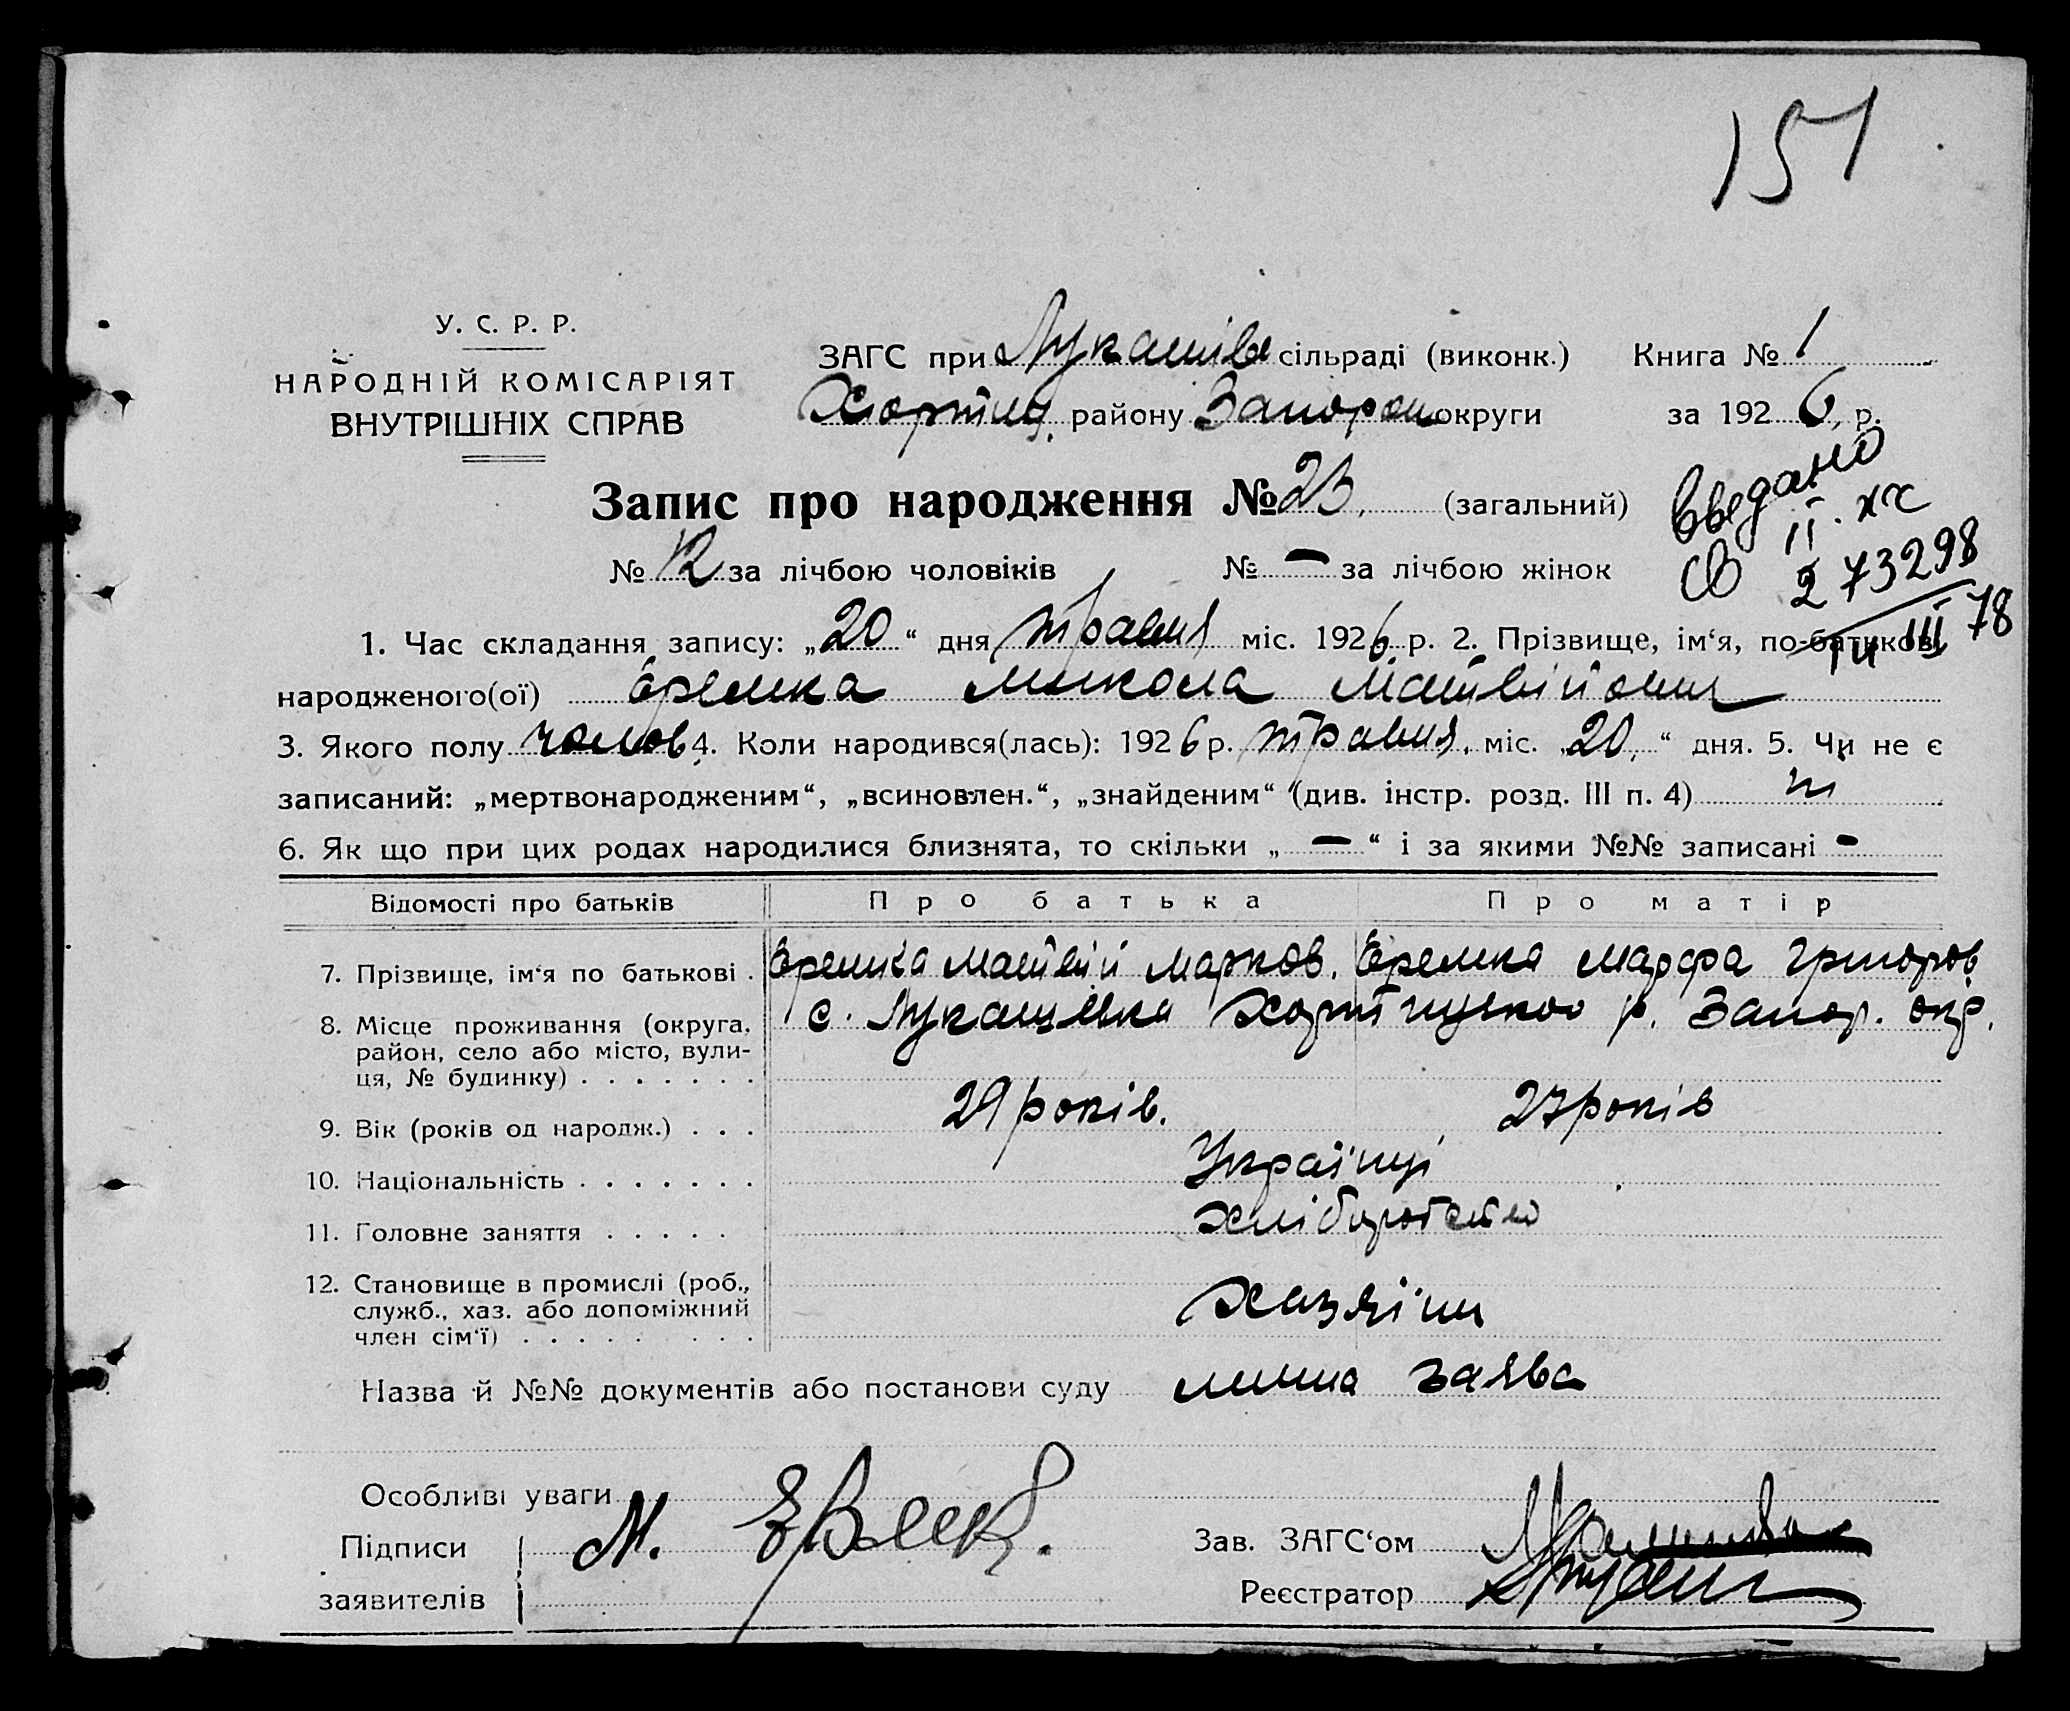 151
У. С. Р. Р.
НАРОДНІЙ КОМІСАРІЯТ
ВНУТРІШНІХ СПРАВ
ЗАГС при Лукашівс сільраді (виконк.) Книга № 1
Хортиц. району Запорож округи за 1926, р.
Запис про народження № 23. (загальний)
№ 12 за лічбою чоловіків № — за лічбою жінок
Введано
II.
273298
III 78
1. Час складання запису: „20“ дня травня міс. 1926 р. 2. Прізвище, ім‘я, по-батькові
народженого(ої) Єремка Микола Матвійович
3. Якого полу чолов 4. Коли народився(лась): 1926 р. травня, міс. „20,“ дня. 5. Чи не є
записаний: „мертвонародженим“, „всиновлен.“, „знайденим“ (див. інстр. розд. III п. 4) ні
6. Як що при цих родах народилися близнята, то скільки „—“ і за якими №№ записані -
Відомості про батьків Про батька Про матір
7. Прізвище, ім‘я по батькові . Єремка Матвій Марков. Єремка Марфа Григоров
8. Місце проживання (округа, с. Лукашівка Хортицького р. Запор. окр.
район, село або місто, вули-
ця, № будинку) . . . . . . .
9. Вік (років од народж.) . . . 29 років. 27 років
10. Національність . . . . . . . Українці
11. Головне заняття . . . . . хліборобство
12. Становище в промислі (роб.,
служб., хаз. або допоміжний Хазяїни
член сім‘ї) . . . . . . . . .
Назва й №№ документів або постанови суду лишна заява
Особливі уваги
Підписи М. Зав. ЗАГС‘ом
заявителів Реєстратор